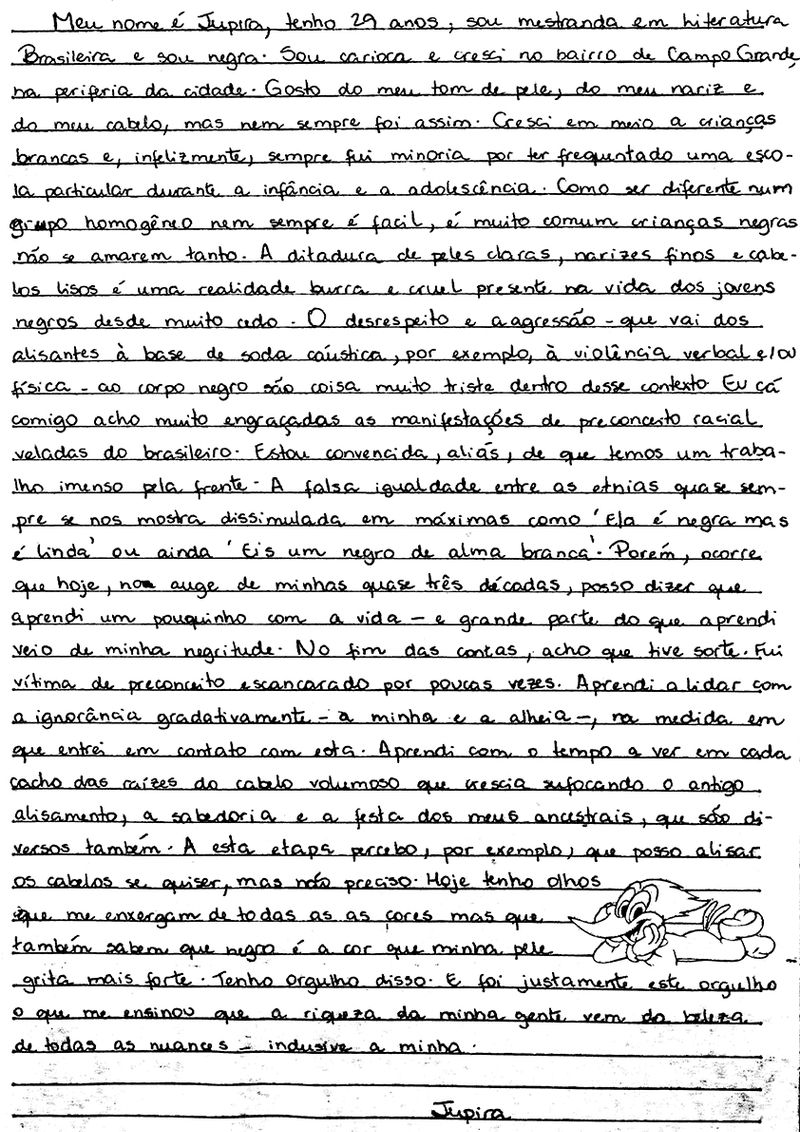 Meu nome é Jupira, tenho 29 anos, sou mestranda em Literatura
Brasileira e sou negra. Sou carioca e cresci no bairro de Campo Grande,
na periferia da cidade. Gosto do meu tom de pele, do meu nariz e
do meu cabelo, mas nem sempre foi assim. Cresci em meio a crianças
brancas e, infelizmente, sempre fui minoria por ter frequentado uma esco-
la particular durante a infância e a adolescência. Como ser diferente num
grupo homogêneo nem sempre é facil, é muito comum crianças negras
não se amarem tanto. A ditadura de peles claras, narizes finos e cabe-
los lisos é uma realidade burra e cruel presente na vida dos jovens
negros desde muito cedo. O desrespeito e a agressão - que vai dos
alisantes à base de soda cáustica, por exemplo, à violência verbal e/ou
física - ao corpo negro são coisa muito triste dentro desse contexto Eu cá
comigo acho muito engraçadas as manifestações de preconceito racial
veladas do brasileiro. Estou convencida, aliás, de que temos um traba-
lho imenso pela frente. A falsa igualdade entre as etnias quase sem-
pre se nos mostra dissimulada em máximas como 'Ela é negra mas
é linda' ou ainda 'Eis um negro de alma branca'. Porém, ocorre
que hoje, no auge de minhas quase três décadas, posso dizer que
aprendi um pouquinho com a vida - e grande parte do que aprendi
veio de minha negritude. No fim das contas, acho que tive sorte. Fui
vítima de preconceito escancarado por poucas vezes. Aprendi a lidar com
a ignorância gradativamente - a minha e a alheia -, na medida em
que entrei em contato com esta. Aprendi com o tempo a ver em cada
cacho das raízes do cabelo volumoso que crescia sufocando o antigo
alisamento, a sabedoria e a festa dos meus ancestrais, que são di-
versos também. A esta etapa percebo, por exemplo, que posso alisar
os cabelos se quiser, mas não preciso. Hoje tenho olhos
que me enxergam de todas as as cores mas que
também sabem que negro é a cor que minha pele
grita mais forte. Tenho orgulho disso. E foi justamente este orgulho
o que me ensinou que a riqueza da minha gente vem da beleza
de todas as nuances - inclusive a minha.
Jupira